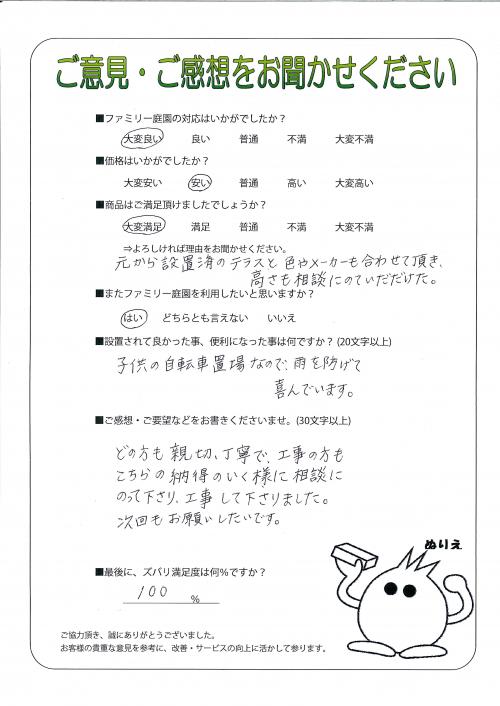 ご意見・ご感想をお聞かせください
■ファミリー庭園の対応はいかがでしたか？
大変良い 良い 普通 不満 大変不満
■価格はいかがでしたか？
大変安い 安い 普通 高い 大変高い
■商品はご満足頂けましたでしょうか？
大変満足 満足 普通 不満 大変不満
⇒よろしければ理由をお聞かせください。
元から設置済のテラスと色やメーカーも合わせて頂き、
高さも相談にのていただけた。
■またファミリー庭園を利用したいと思いますか？
はい どちらとも言えない いいえ
■設置されて良かった事、便利になった事は何ですか？(20文字以上)
子供の自転車置場なので、雨を防げて
喜んでいます。
■ご感想・ご要望などをお書きくださいませ。(30文字以上)
どの方も親切、丁寧で、工事の方も
こちらの納得のいく様に相談に
のって下さり、工事して下さりました。
次回もお願いしたいです。
ぬりえ
■最後に、ズバリ満足度は何％ですか？
100 %
ご協力頂き、誠にありがとうございました。
お客様の貴重な意見を参考に、改善・サービスの向上に活かして参ります。